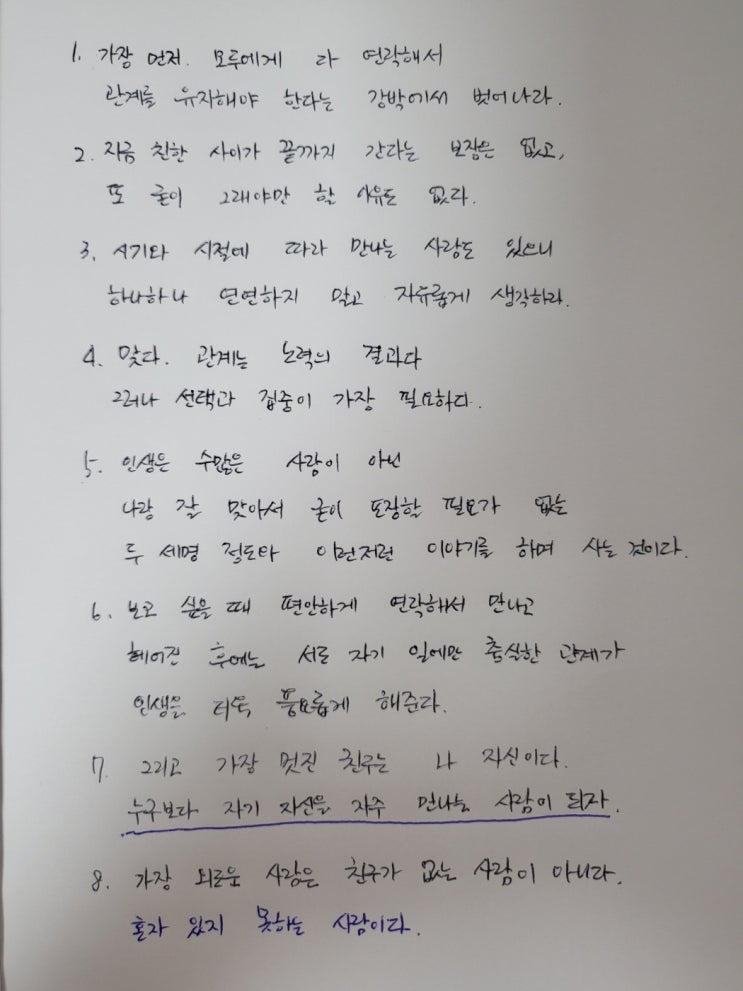 1. 가장 먼저. 모두에게 다 연락해서
관계를 유지해야 한다는 강박에서 벗어나라.
2. 지금 친한 사이가 끝까지 간다는 보장은 없고,
또 굳이 그래야만 할 이유도 없다.
3. 시기와 시절에 따라 만나는 사람도 있으니
하나하나 연연하지 말고 자유롭게 생각하라.
4. 맞다. 관계는 노력의 결과다
그러나 선택과 집중이 가장 필요하다.
5. 인생은 수많은 사람이 아닌
나랑 잘 맞아서 굳이 포장할 필요가 없는
두 세명 정도와 이런저런 이야기를 하며 사는 것이다.
6. 보고 싶을 때 편안하게 연락해서 만나고
헤어진 후에는 서로 자기 일에만 충실한 관계가
인생을 더욱 풍요롭게 해준다.
7. 그리고 가장 멋진 친구는 나 자신이다.
누구보다 자기 자신을 자주 만나는 사람이 되자.
8. 가장 외로운 사람은 친구가 없는 사람이 아니라.
혼자 있지 못하는 사람이다.